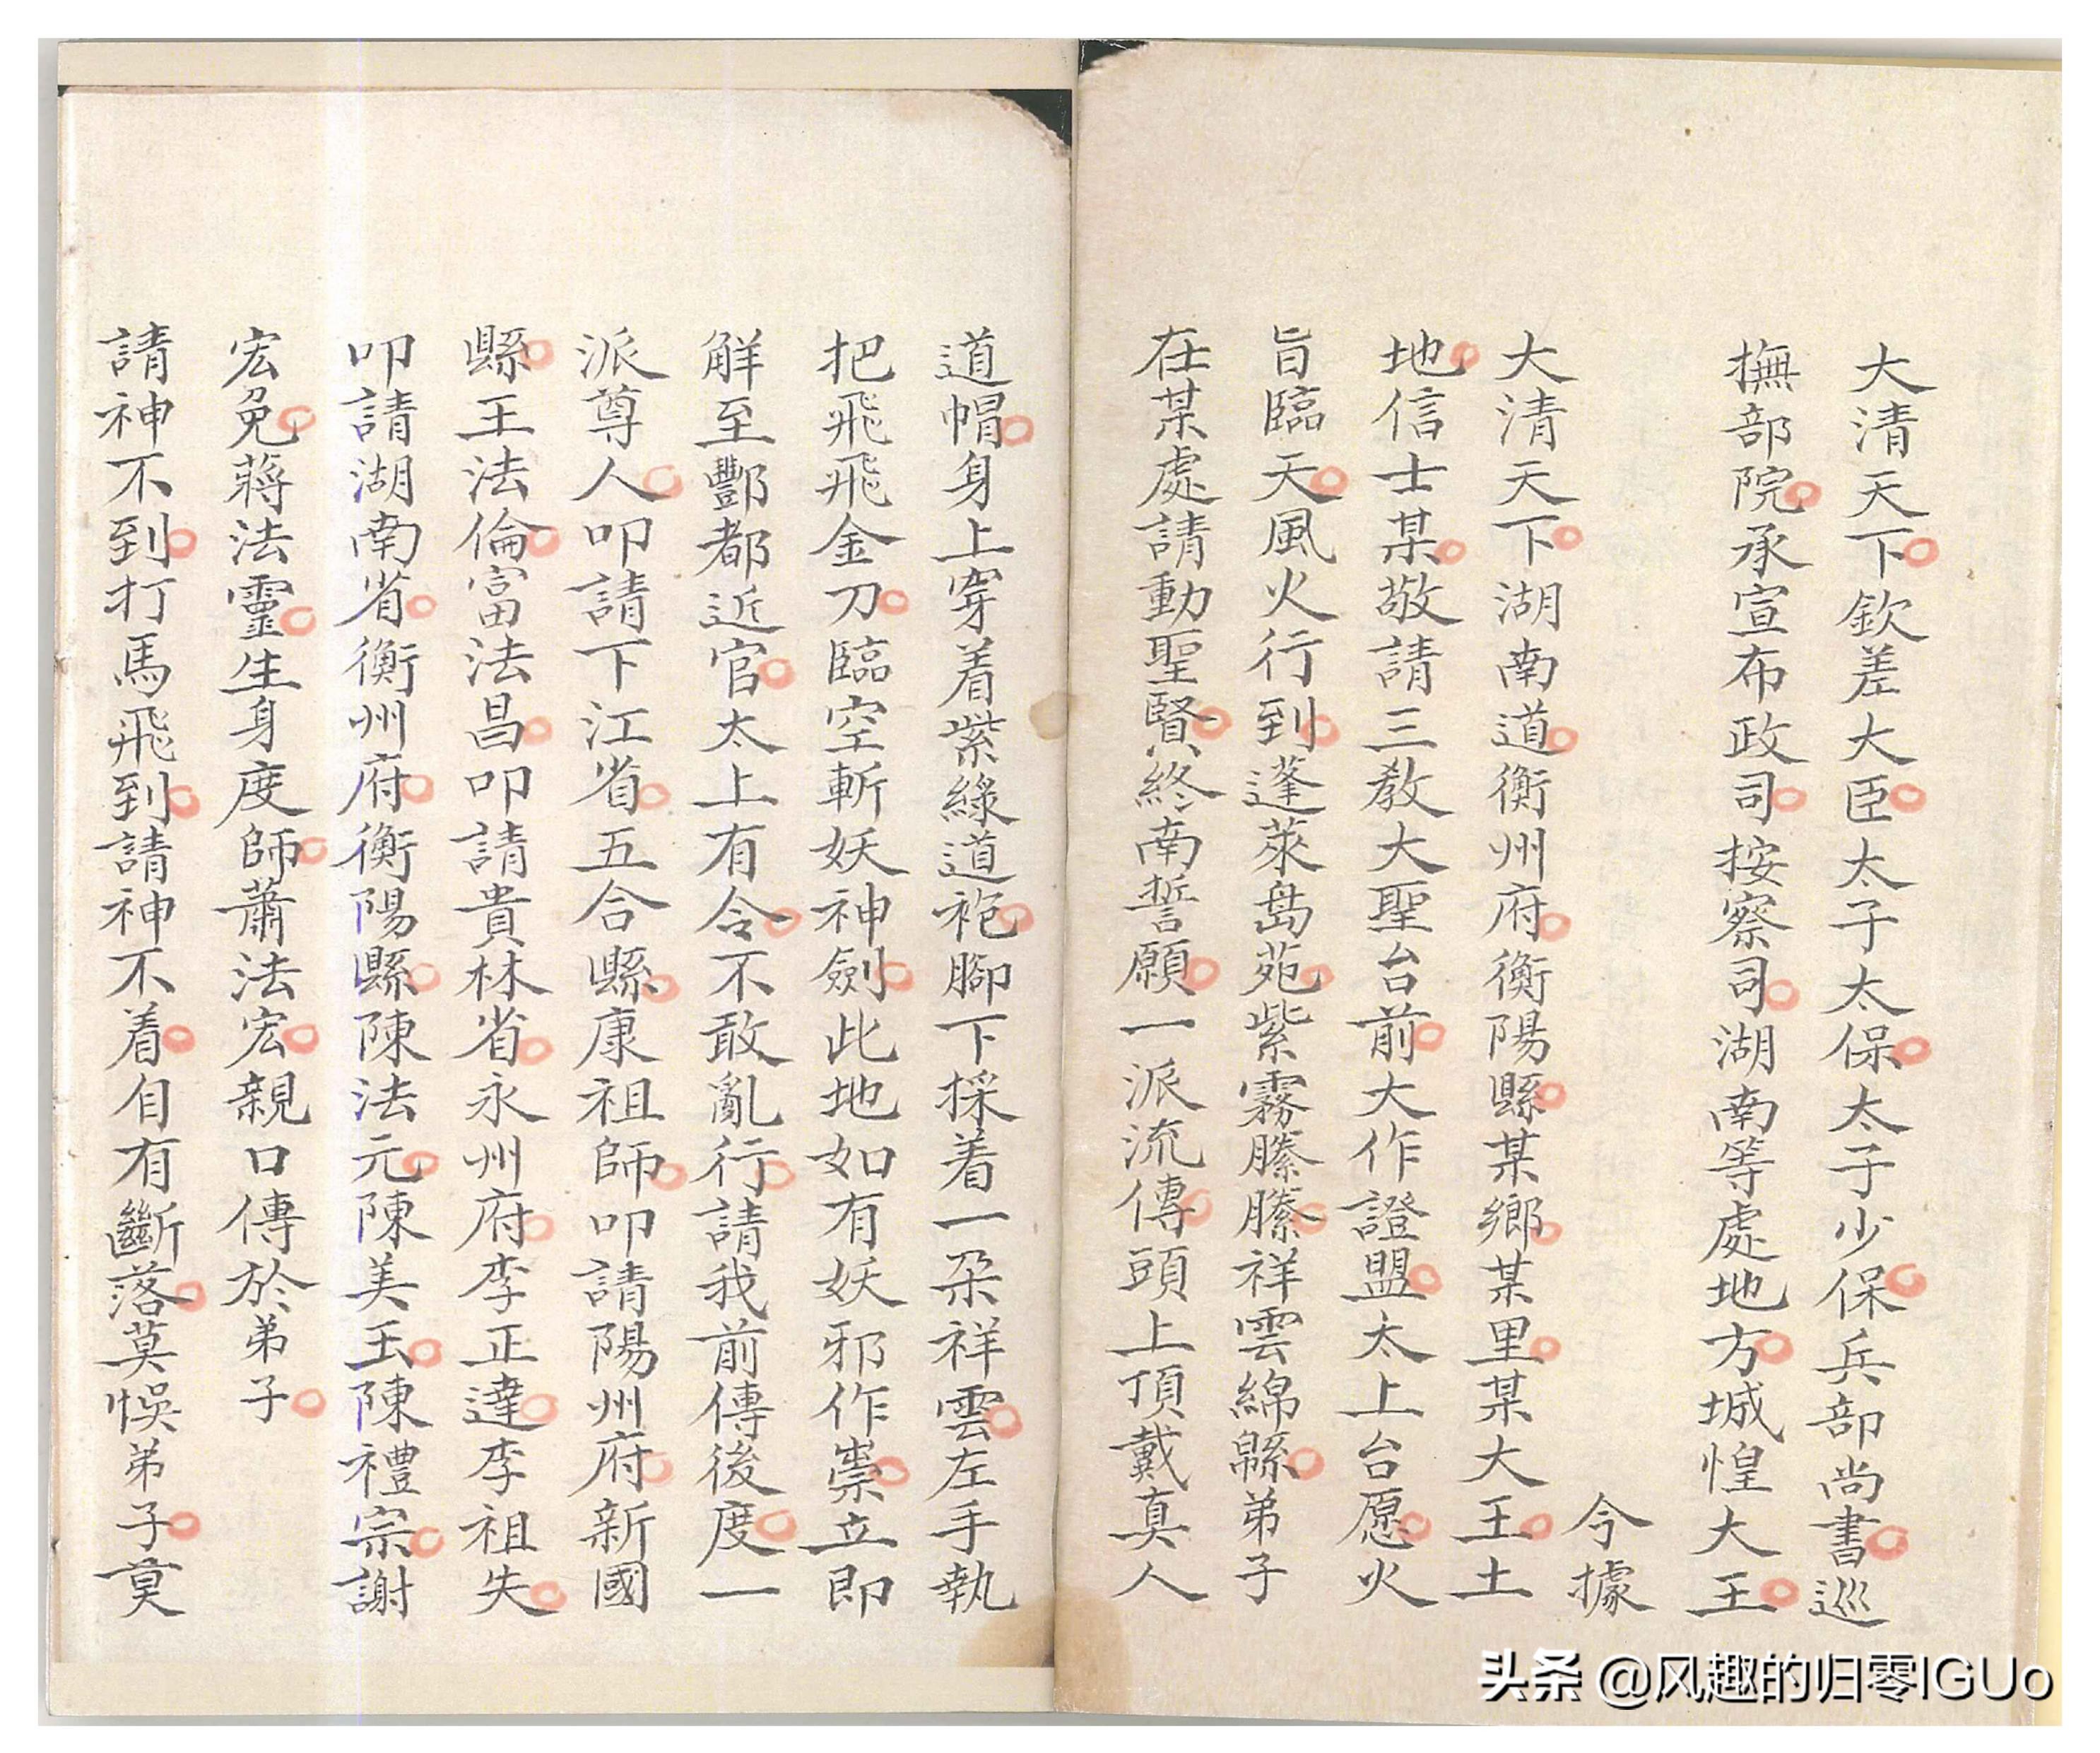 大清天下欽差大臣太子太保太子少保兵部尚書巡
撫部院承宣布政司按察司湖南等處地方城惶大王
今據
大清天下湖南道衡州府衡陽縣某鄉某里某大王土
地信士某敬請三教大聖台前大作證盟太上台愿火
旨臨天風火行到蓬萊島苑紫霧縢縢祥雲綿緜弟子
在某處請動聖賢終南誓願一派流傳頭上頂戴真人
道帽身上穿着紫綠道袍腳下採着一朶祥雲左手執
把飛飛金刀臨空斬妖神劍此地如有妖邪作祟立即
觧至酆都近官太上有令不敢亂行請我前傳後度一
派尊人叩請下江省五合縣康祖師叩請陽州府新國
縣王法倫富法昌叩請貴林省永州府李正達李祖失
叩請湖南省衡州府衡陽縣陳法元陳美玉陳禮宗謝
宏免蔣法靈生身度師蕭法宏親口傳於弟子
請神不到打馬飛到請神不着自有斷落莫悞弟子莫
头条 @风趣的归零IGUo